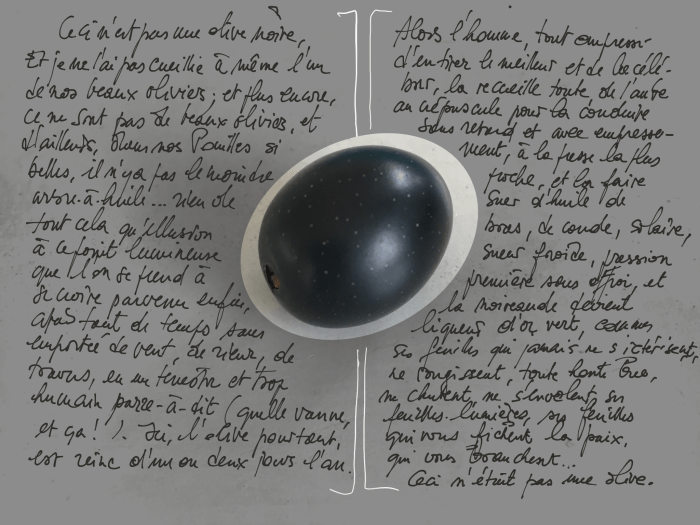 Ceci n'est pas une olive noire,
Et je ne l'ai pas cueillie à même l'un
de nos beaux oliviers; et plus encore,
ce ne sont pas de beaux oliviers, et
d'ailleurs, dans nos Pouilles si
belles, il n'y a pas le moindre
arbre-à-huile... rien de
tout cela qu'illusion
à ce point lumineuse
que l'on se prend à
se croire parvenu enfin,
après tant de temps sans
emporté de vent, de rien, de
travers, en un fenestre et trop
humain parre-à-dit (quelle vanne,
et ça!). Ici, l'olive pourtant,
est reine d'un ou deux jours l'an.
Alors l'homme, tout empressé
d'en tirer le meilleur et de la célé-
brer, la recueille toute de l'aube
au crépuscule pour la conduire
sans retard et avec empresse-
ment, à la presse la plus
proche, et la faire
suer d'huile de
bras, de coude, solaire,
sueur froide, pression
première sans effroi, et
la noiraude devient
liqueur d'or vert, comme
ses feuilles qui jamais ne s'ictérisent,
ne rougissent, toute honte bue,
ne chutent, ne s'envolent, ses
feuilles-lumières, ses feuilles
qui vous fichent la paix,
qui vous branchent...
Ceci n'était pas une olive.